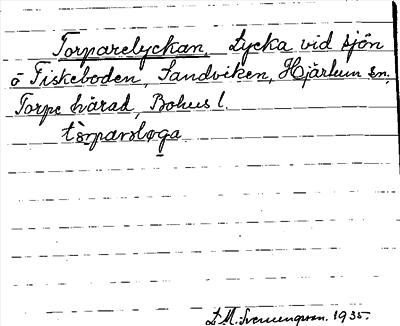 Torparelyckan, Lycka vid sjön
ö Fiskeboden, Sandviken, Hjärtum sn,
Torpe härad, Bohus l.
tòrparsløga
L. M. Svennungsson. 1935.